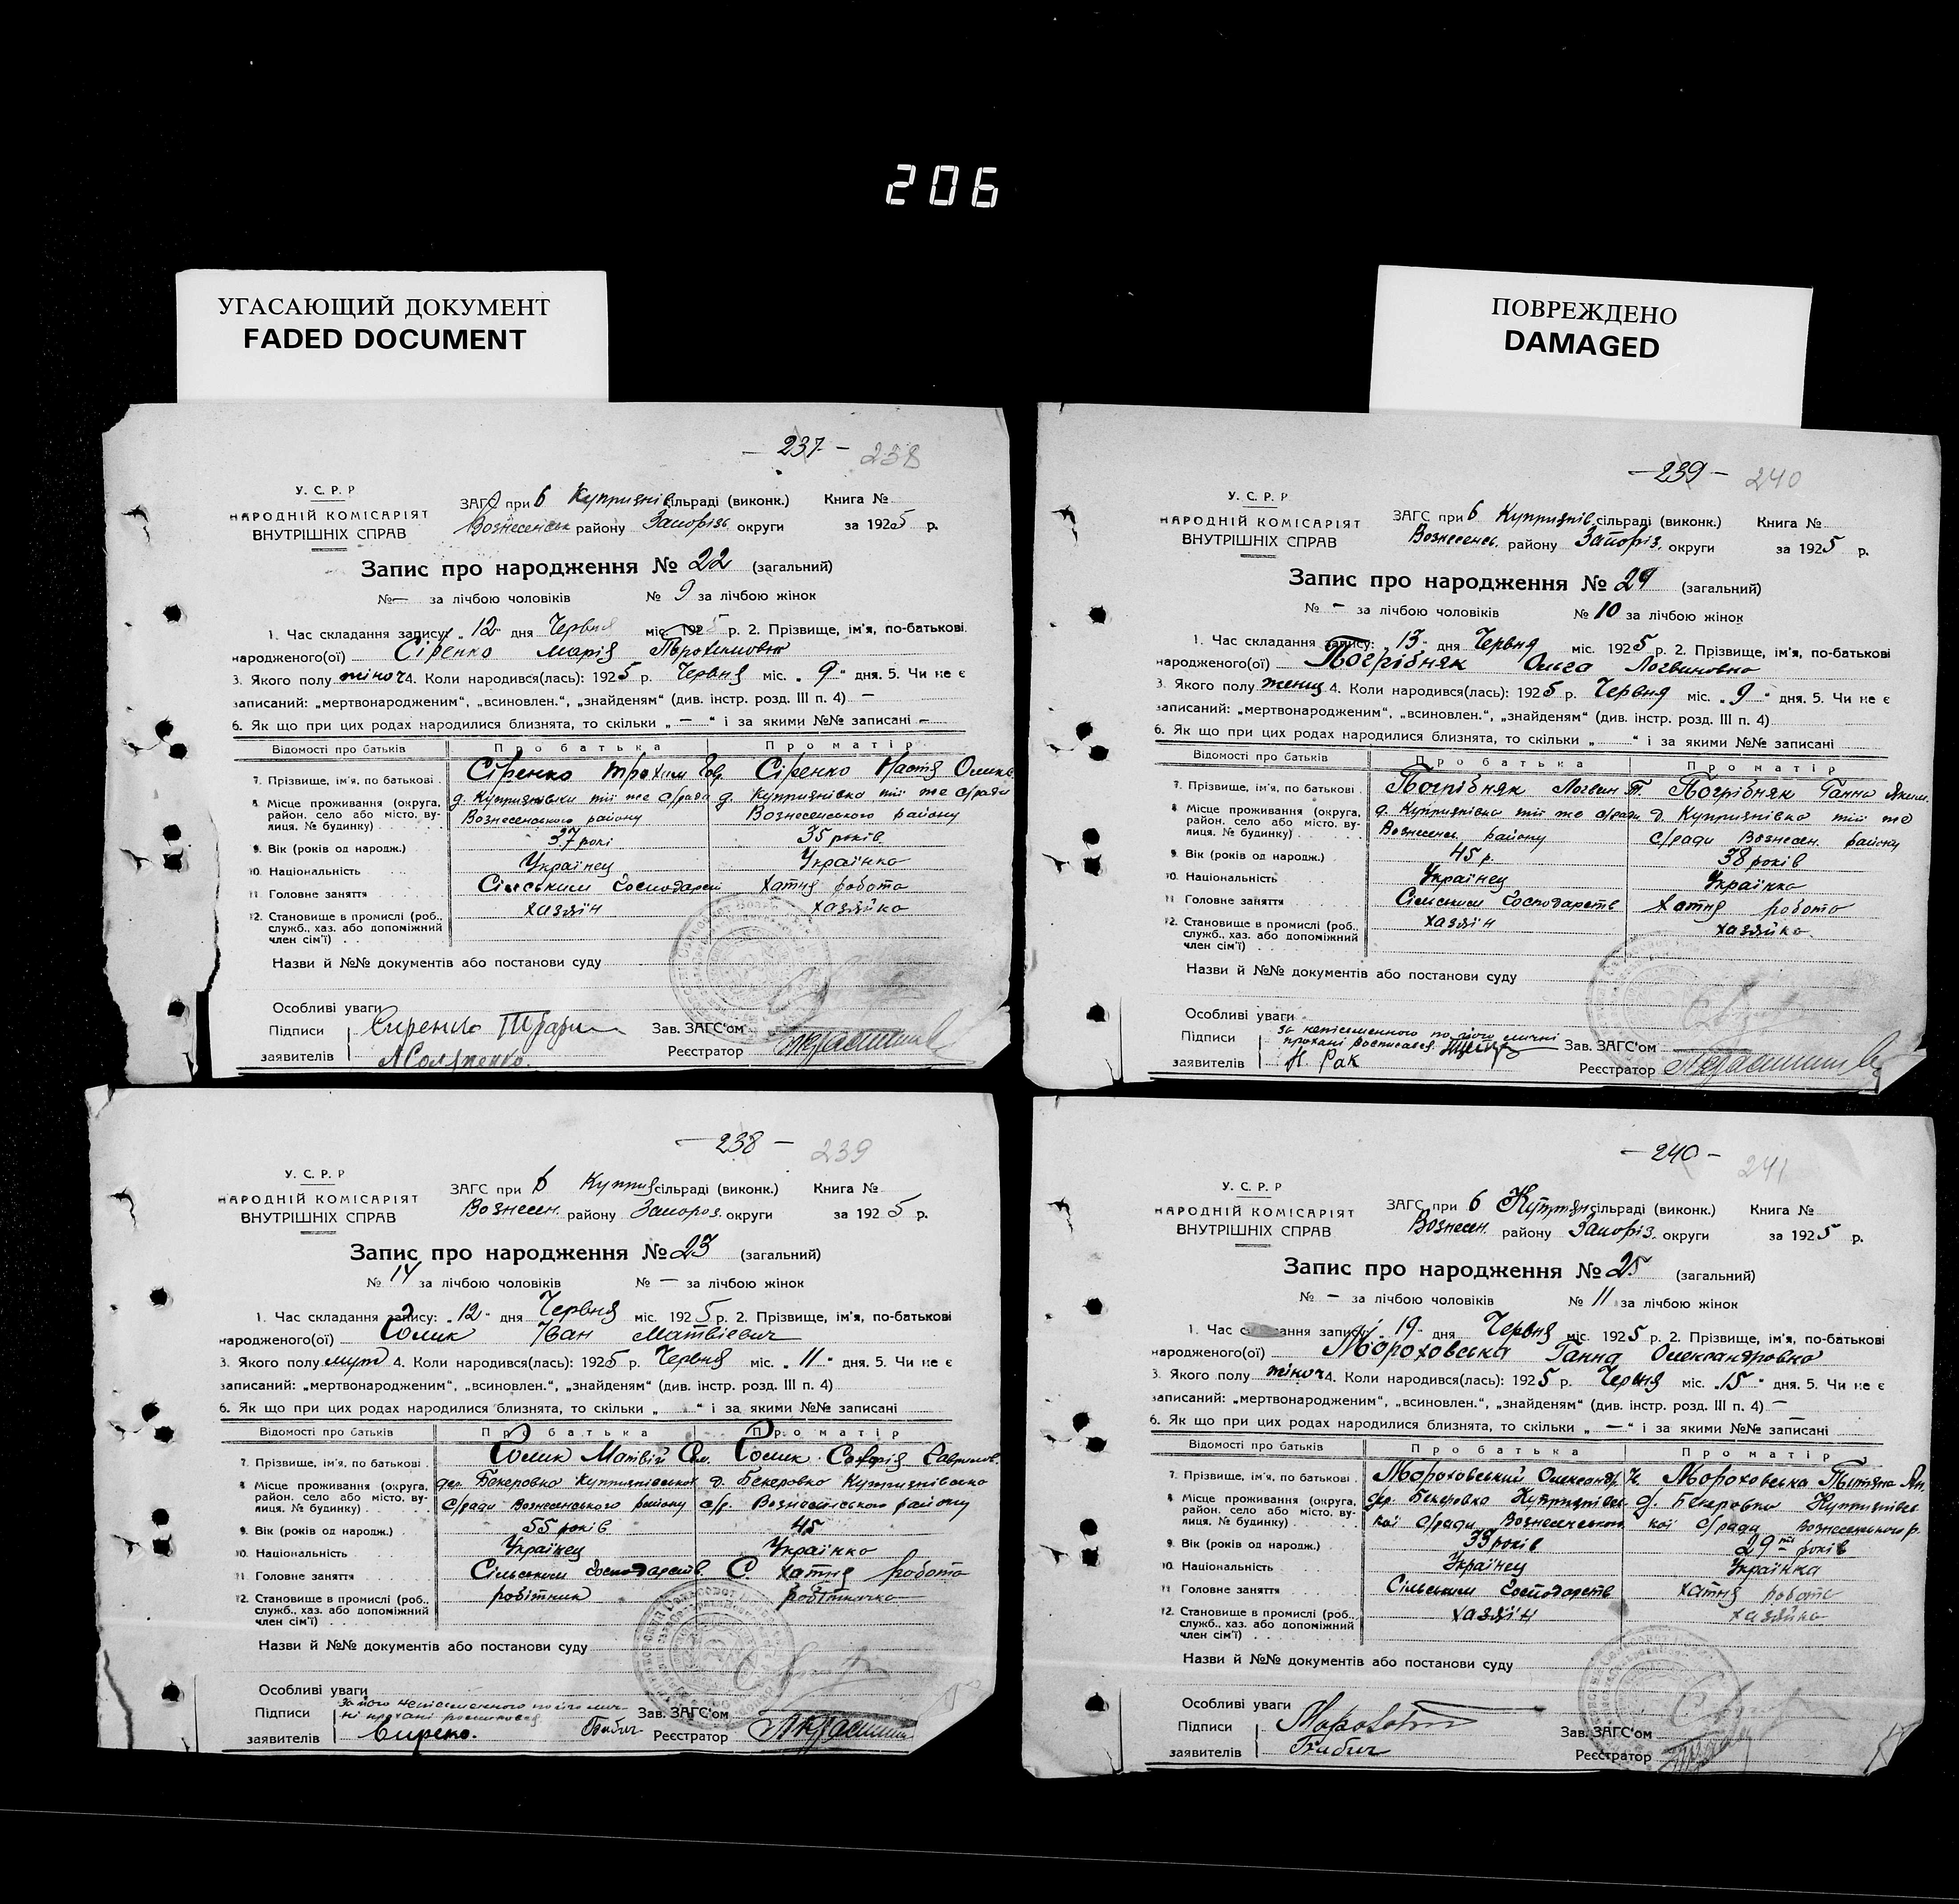 206
УГАСАЮЩИЙ ДОКУМЕНТ
FADED DOCUMENT
ПОВРЕЖДЕНО
DAMAGED
— 237 — 238
У. С. Р. Р
НАРОДНІЙ КОМІСАРІЯТ
ВНУТРІШНІХ СПРАВ
ЗАГС при 6 Куприянів сільраді (виконк.) Книга №
Вознесенськ району Запорізь округи за 1925 р.
Запис про народження № 22 (загальний)
№ — за лічбою чоловіків № 9 за лічбою жінок
1. Час складання запису: „12“ дня Червня міс. 1925 р. 2. Прізвище, ім'я, по-батькові
народженого(ої) Сіренко Марія Трохимовна
3. Якого полу жіноч 4. Коли народився(лась): 1925 р. Червня міс. „9“ дня. 5. Чи не є
записаний: „мертвонародженим“, „всиновлен.“, „знайденям“ (див. інстр. розд. III п. 4) —
6. Як що при цих родах народилися близнята, то скільки „—“ і за якими №№ записані —
Відомості про батьків Про батька Про матір
7. Прізвище, ім'я, по батькові Сіренко Трохим Сіренко Настя
8. Місце проживання (округа, район, село або місто, вулиця, № будинку) д. Куприянівки тії же с/ради д. Куприянівка тії же с/ради
Вознесенського району Вознесенського району
9. Вік (років од народж.) 37 рокі 35 років
10. Національність Українец Українка
11. Головне заняття Сільським Господарст Хатня робота
12. Становище в промислі (роб., служб., хаз. або допоміжний член сім'ї) хазяїн хазяйка
Назви й №№ документів або постанови суду
Особливі уваги
Підписи Сиренко
заявителів
Зав. ЗАГС'ом
Реєстратор
— 239 — 240
У. С. Р. Р
НАРОДНІЙ КОМІСАРІЯТ
ВНУТРІШНІХ СПРАВ
ЗАГС при 6 Куприянів. сільраді (виконк.) Книга №
Вознесенс. району Запоріз. округи за 1925 р.
Запис про народження № 24 (загальний)
№ — за лічбою чоловіків № 10 за лічбою жінок
1. Час складання запису: „13“ дня Червня міс. 1925 р. 2. Прізвище, ім'я, по-батькові
народженого(ої) Погрібняк Ольга Логвиновна
3. Якого полу женщ 4. Коли народився(лась): 1925 р. Червня міс. „9“ дня. 5. Чи не є
записаний: „мертвонародженим“, „всиновлен.“, „знайденям“ (див. інстр. розд. III п. 4)
6. Як що при цих родах народилися близнята, то скільки „ “ і за якими №№ записані
Відомості про батьків Про батька Про матір
7. Прізвище, ім'я, по батькові Погрібняк Логвин Т. Погрібняк Ганна Яким.
8. Місце проживання (округа, район, село або місто, вулиця, № будинку) д. Куприянівка тії же с/ради д. Куприянівка тії же
Вознесенс. району с/ради Вознесен. району
9. Вік (років од народж.) 45 р. 38 років
10. Національність Українец Українка
11. Головне заняття Сільським Господарств Хатня робота
12. Становище в промислі (роб., служб., хаз. або допоміжний член сім'ї) хазяїн хазяйка.
Назви й №№ документів або постанови суду
Особливі уваги
Підписи за неписьменного по його личні
прохані росписався
заявителів Н. Рак
Зав. ЗАГС'ом
Реєстратор
— 238 — 239
У. С. Р. Р
НАРОДНІЙ КОМІСАРІЯТ
ВНУТРІШНІХ СПРАВ
ЗАГС при 6 Куприя сільраді (виконк.) Книга №
Вознесен. району Запороз. округи за 1925 р.
Запис про народження № 23 (загальний)
№ 14 за лічбою чоловіків № — за лічбою жінок
1. Час складання запису: „12“ дня Червня міс. 1925 р. 2. Прізвище, ім'я, по-батькові
народженого(ої) Сомик Іван Матвіевич
3. Якого полу муж 4. Коли народився(лась): 1925 р. Червня міс. „11“ дня. 5. Чи не є
записаний: „мертвонародженим“, „всиновлен.“, „знайденям“ (див. інстр. розд. III п. 4)
6. Як що при цих родах народилися близнята, то скільки „ “ і за якими №№ записані
Відомості про батьків Про батька Про матір
7. Прізвище, ім'я, по батькові Сомик Матвій Сомик Гаврилов.
8. Місце проживання (округа, район, село або місто, вулиця, № будинку) дер. Бекеровка Куприянівської д. Бекеровка Куприянівська
с/ради Вознесенського району с/р. Вознесенського району
9. Вік (років од народж.) 55 років 45
10. Національність Українец Українка
11. Головне заняття Сільським Господарств. С. хатня робота
12. Становище в промислі (роб., служб., хаз. або допоміжний член сім'ї) робітник робітничка
Назви й №№ документів або постанови суду
Особливі уваги
Підписи за його неписьменного по його лич-
ні прохані росписався
заявителів Сирено. Бабич
Зав. ЗАГС'ом
Реєстратор
— 240 — 241
У. С. Р. Р
НАРОДНІЙ КОМІСАРІЯТ
ВНУТРІШНІХ СПРАВ
ЗАГС при 6 Куприян сільраді (виконк.) Книга №
Вознесен. району Запоріз. округи за 1925 р.
Запис про народження № 25 (загальний)
№ — за лічбою чоловіків № 11 за лічбою жінок
1. Час складання запису: „19“ дня Червня міс. 1925 р. 2. Прізвище, ім'я, по-батькові
народженого(ої) Мороховська Ганна Олександровна
3. Якого полу жіноч 4. Коли народився(лась): 1925 р. Червня міс. „15“ дня. 5. Чи не є
записаний: „мертвонародженим“, „всиновлен.“, „знайденям“ (див. інстр. розд. III п. 4) —
6. Як що при цих родах народилися близнята, то скільки „—“ і за якими №№ записані —
Відомості про батьків Про батька Про матір
7. Прізвище, ім'я, по батькові Мороховський Олександр. Мороховська Тытяна
8. Місце проживання (округа, район, село або місто, вулиця, № будинку) дер. Бекеровка Куприянівсь- д. Бекеровка Куприянівсь
кої с/ради Вознесенського кої с/ради Вознесенського р.
9. Вік (років од народж.) 39 років 29 років
10. Національність Українец Українка
11. Головне заняття Сільським Господарств хатня робота
12. Становище в промислі (роб., служб., хаз. або допоміжний член сім'ї) хазяїн хазяйка
Назви й №№ документів або постанови суду
Особливі уваги
Підписи
заявителів Бабич
Зав. ЗАГС'ом
Реєстратор